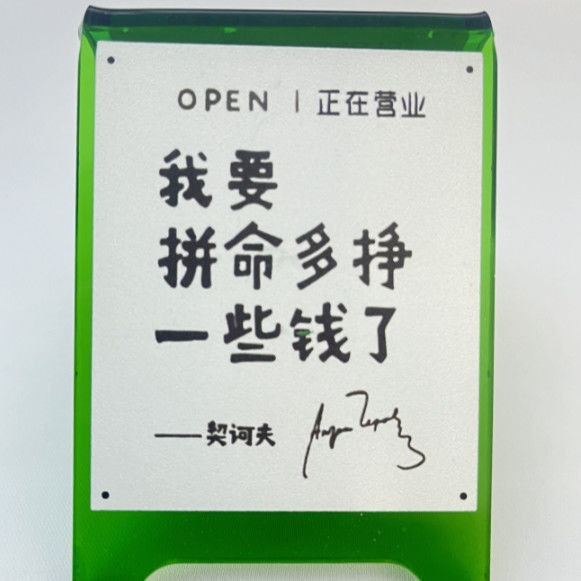 OPEN | 正在营业
我要
拼命多挣
一些钱了
——契诃夫